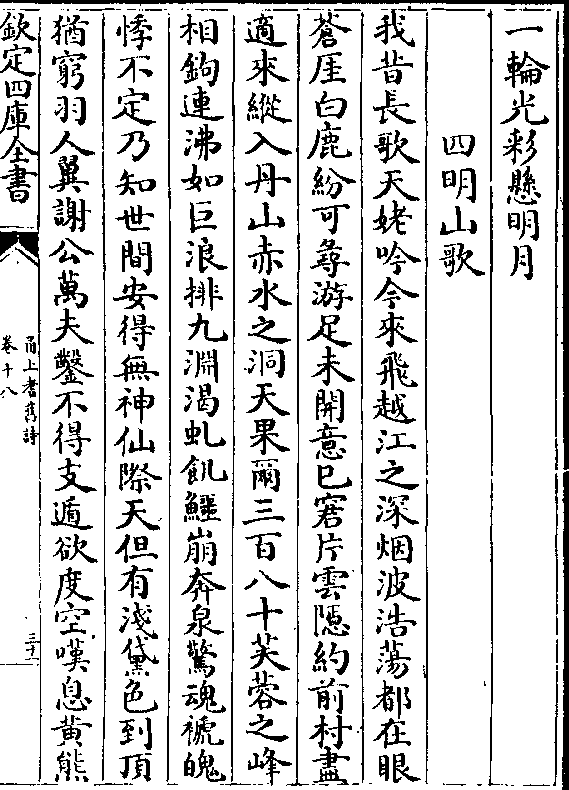 一輪光彩懸明月
四明山歌
我昔長歌天姥吟今來飛越江之深烟波浩蕩都在眼
蒼厓白鹿紛可尋游足未開意已窘片雲隱約前村盡
適來縱入丹山赤水之洞天果爾三百八十芙蓉之峰
相鉤連沸如巨浪排九淵渴虬飢鱷崩奔泉驚魂褫魄
悸不定乃知世間安得無神仙際天但有淺黛色到頂
猶窮羽人翼謝公萬夫鑿不得支遁欲度空嘆息黄熊
欽定四庫全書
甬上耆舊詩
卷十八
三十二